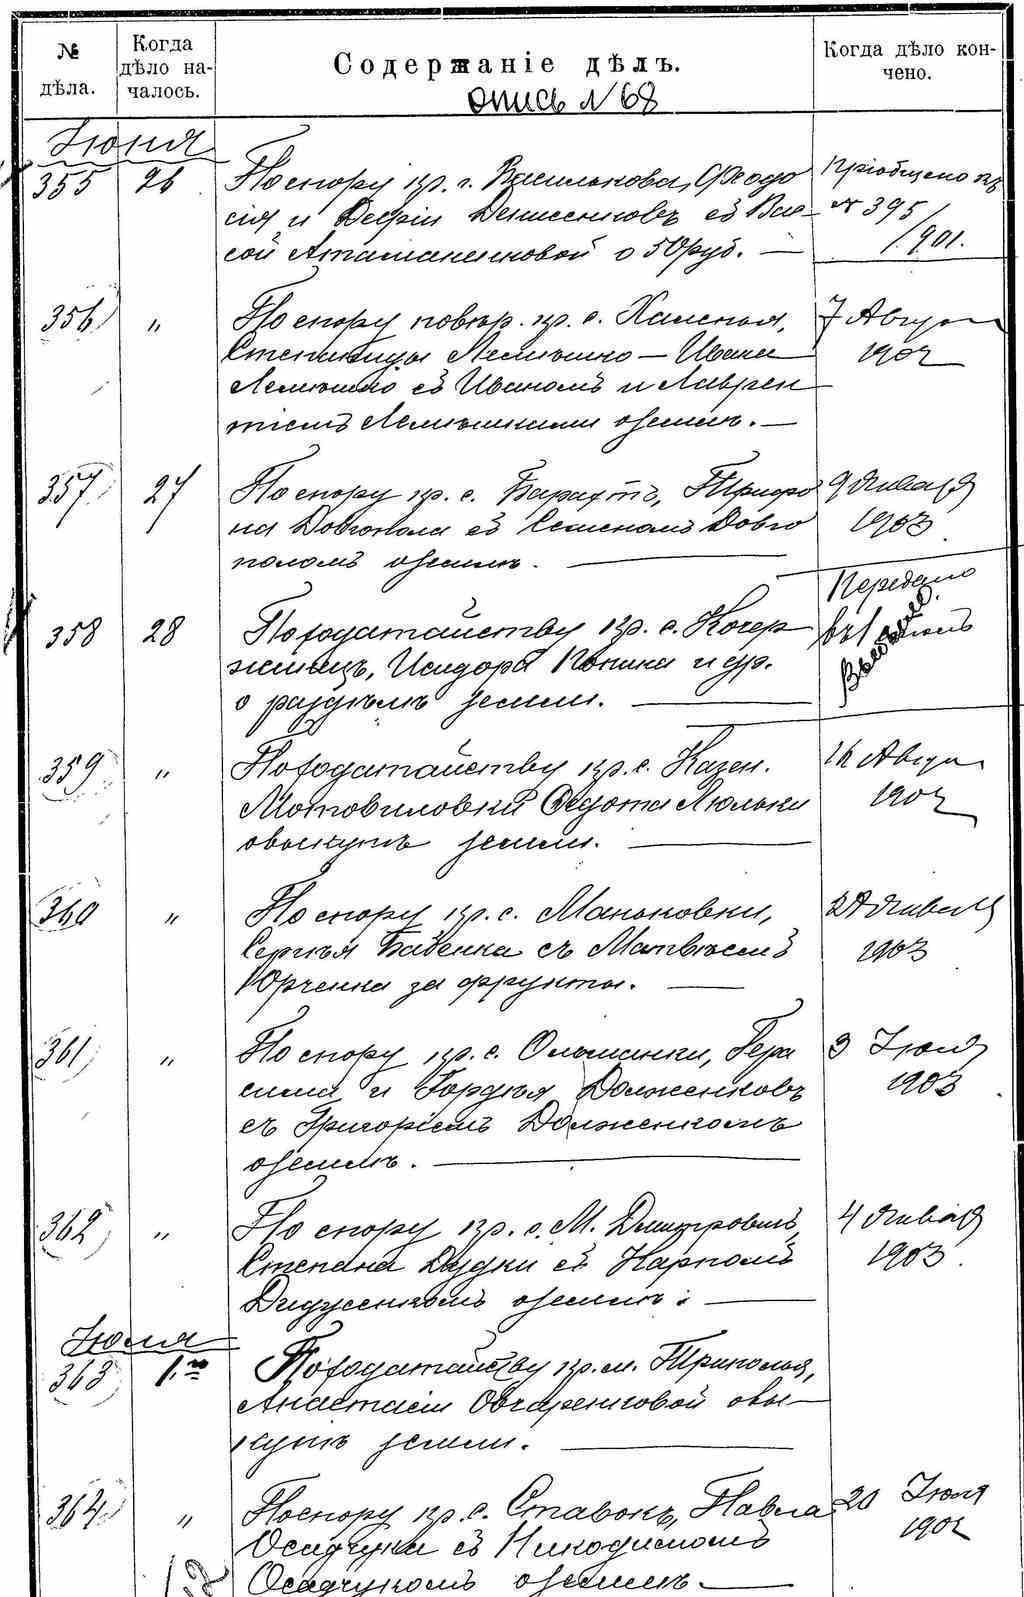 № дѣла.
Когда дѣло на-
чалось.
Содержаніе дѣлъ.
Когда дѣло кон-
чено.
опись N 68
Іюня
355 26 По спору кр. г. Василькова, Феодо
сія и Дениссенковъ съ Вас-
сой Атаманенковой о 50 руб. —
Пріобщено къ
№ 395/901.
356 " По спору повѣр. кр. с.
Лемѣшко — Ивана
Лемѣшко съ Иваномъ и Лаврен
тіемъ Лемѣшками о землѣ. —
7 Августа
1902
357 27 По спору кр. с. Барахтъ, Трифо
на Довгопола съ Семеномъ Довго
поломъ о землѣ. —
9 Января
1903
358 28 По ходатайству кр. с. Когер
жинецъ, Исидора Кокина и др.
о раздѣлѣ земли. —
Передано
359 " По ходатайству кр. с. Казен.
Мотовиловки Федота Люльки
о выкупѣ земли. —
16 Августа
1902
360 " По спору кр. с. Маньковки,
Сергѣя Бабенка съ Матвѣемъ
Юрченка за фрукты. —
Января
1903
361 " По спору кр. с. Ольшанки, Гера
сима и Гордѣя Долженковъ
съ Григоріемъ Долженкомъ
о землѣ. —
3 Іюля
1903
362 " По спору кр. с. М. Дмитровки,
Степана Дудки съ Карпомъ
Дидусенкомъ о землѣ. —
4 Января
1903
Іюля
363 1го По ходатайству кр. м. Триполья,
Анастасіи Овчаренковой о вы-
купѣ земли. —
364 " По спору кр. с. Ставокъ, Павла
Осадчука съ Никодимомъ
Осадчукомъ о землѣ. —
20 Іюля
1902